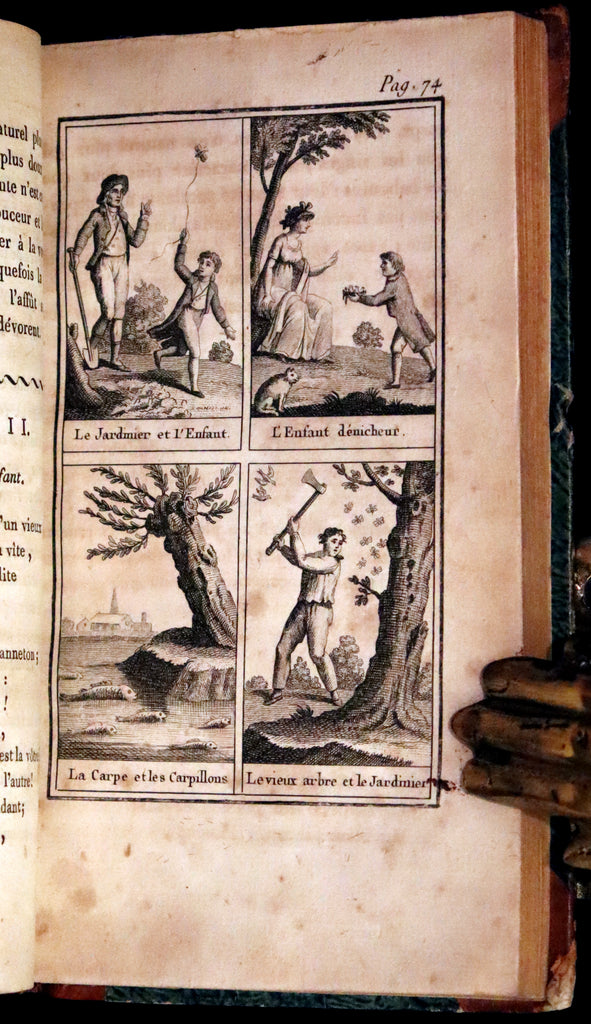 aturel pl
plus dou
nte n'est
ouceur et
er à la v
quefois l
l'affût
dévorent.
II.
fant.
'un vieux
vîte,
dite
anneton;
:
!
,
est la vôtre
l'autre!
dant;
,
Pag. 74
Le Jardinier et l'Enfant.
L'Enfant dénicheur.
La Carpe et les Carpillons
Le vieux arbre et le Jardinier